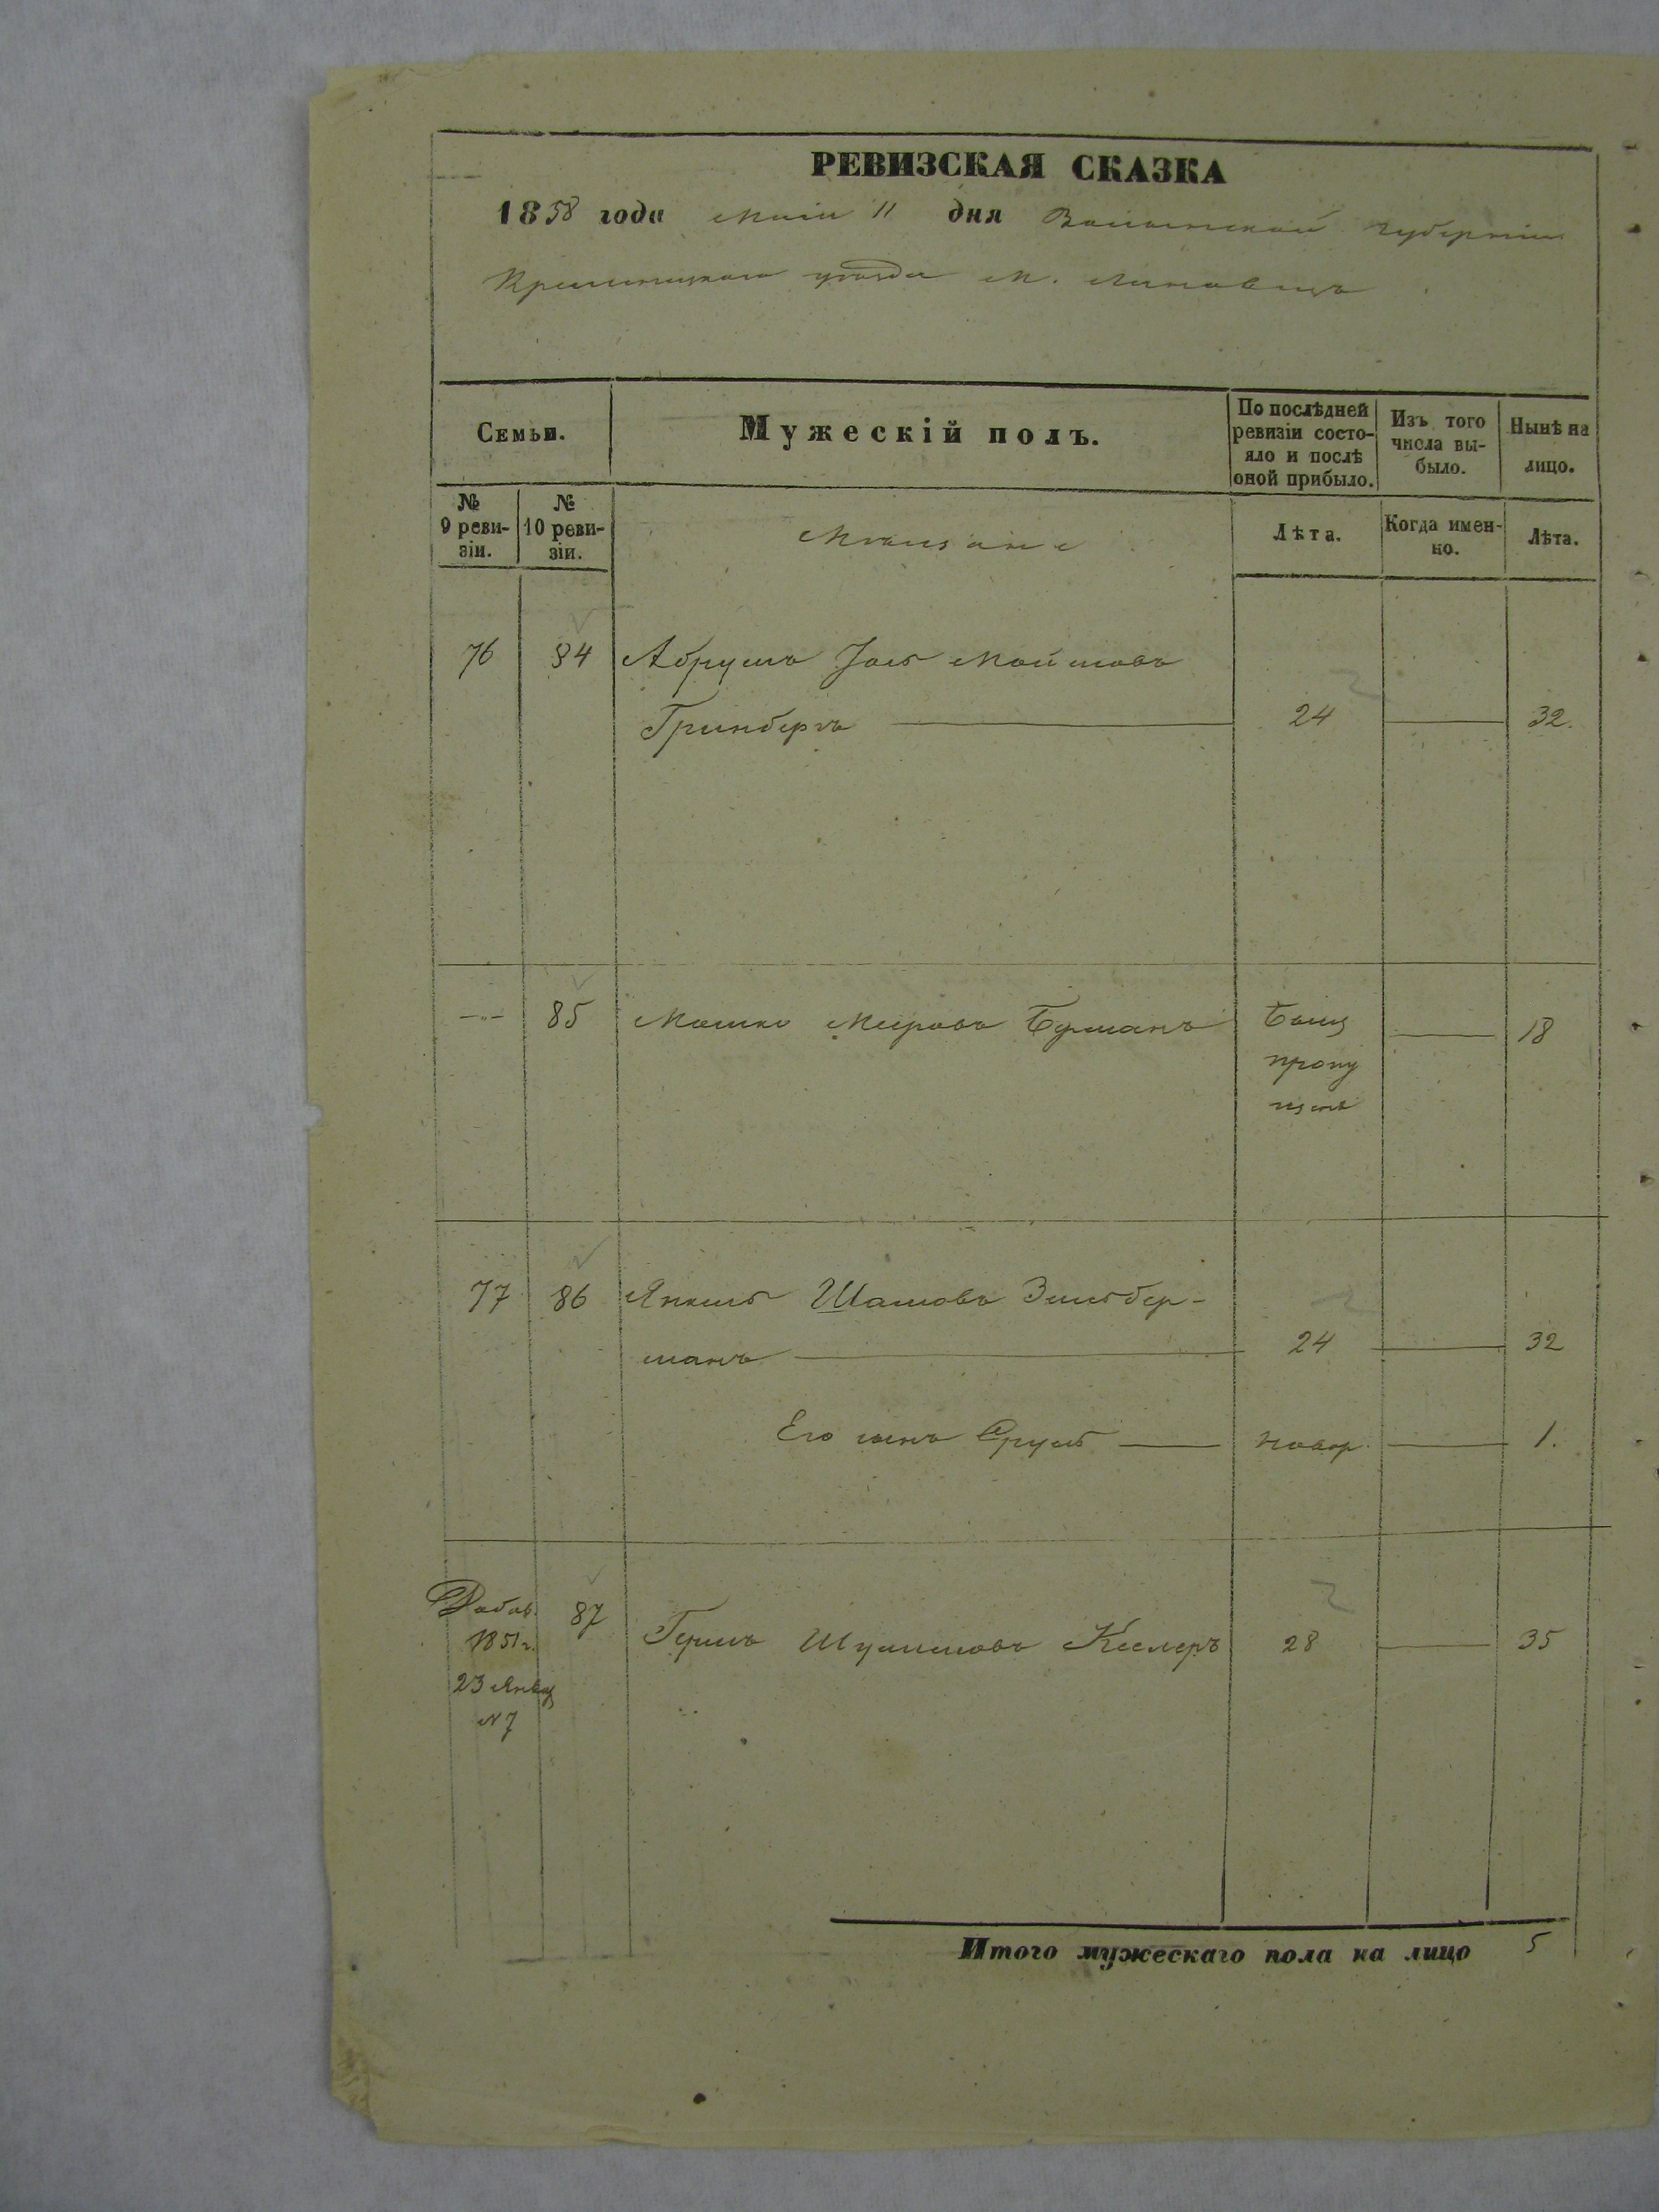 РЕВИЗСКАЯ СКАЗКА
1858 года Маія 11 дня Волынской губерніи
Кременецкаго уѣзда М. Ляховецъ
Семьи.
Мужескій полъ.
По послѣдней ревизіи состо-
яло и послѣ
оной прибыло.
Изъ того
числа вы-
было.
Нынѣ на
лицо.
№
9 реви-
зіи.
№
10 реви-
зіи.
Мѣщане
Лѣта.
Когда имен-
но.
Лѣта.
76 84 Абрумъ Іось Мойшовъ
Гринбергъ 24 32.
-„- 85 Мошко Меировъ Бурманъ 18
пропу
щенъ
77 86 Янкель Шаповъ Зильбер-
манъ 24 32
Его сынъ Сруль новор. 1.
Добав. 87
1851 г. Гершъ Шулимовъ Кеслеръ 28 35
23 Янв.
№ 7
Итого мужескаго пола на лицо 5